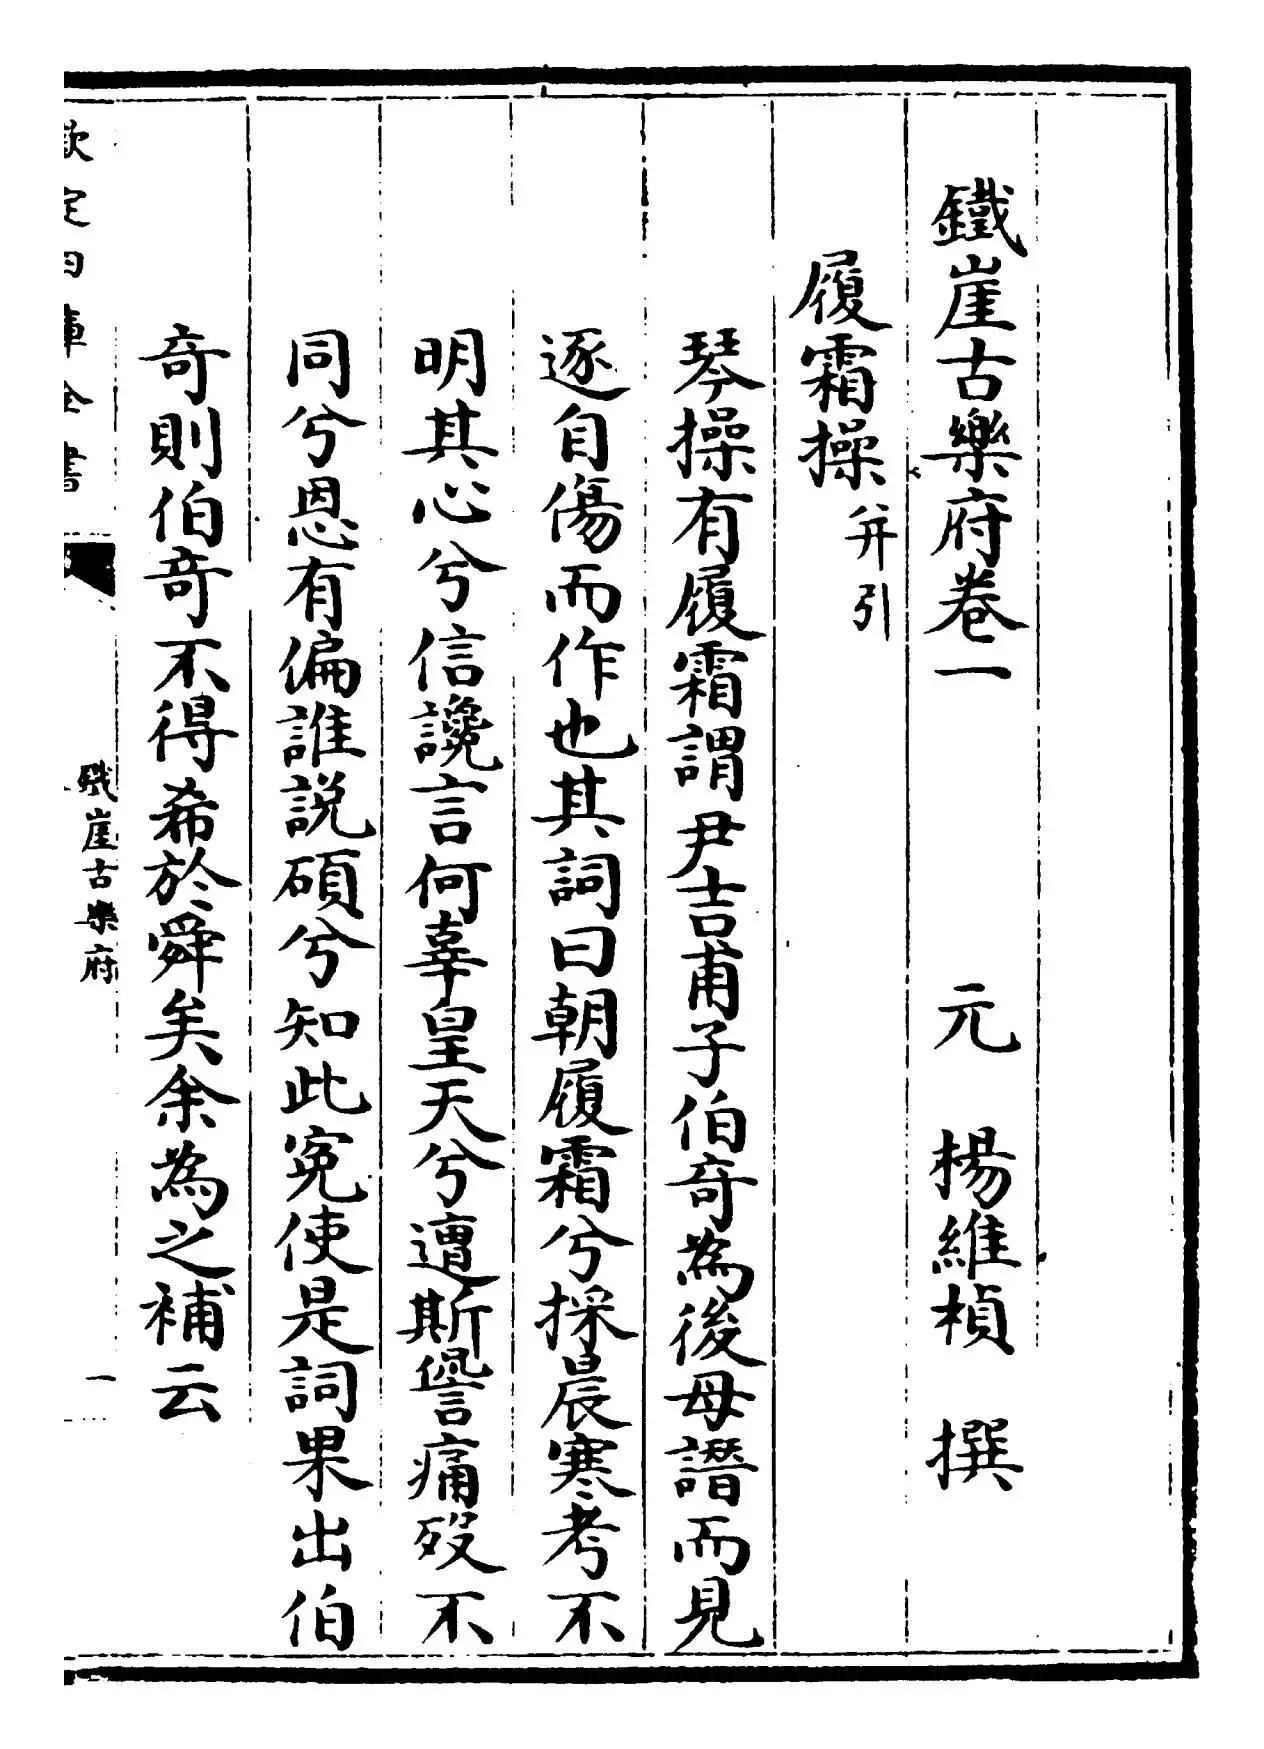 鐵崖古樂府卷一　元　楊維楨　撰
履霜操并引
琴操有履霜謂尹吉甫子伯奇為後母譖而見
逐自傷而作也其詞曰朝履霜兮採晨寒考不
明其心兮信讒言何辜皇天兮遭斯諐痛歿不
同兮恩有偏誰說碩兮知此寃使是詞果出伯
奇則伯奇不得希於舜矣余為之補云
欽定四庫全書
鐵崖古樂府
一